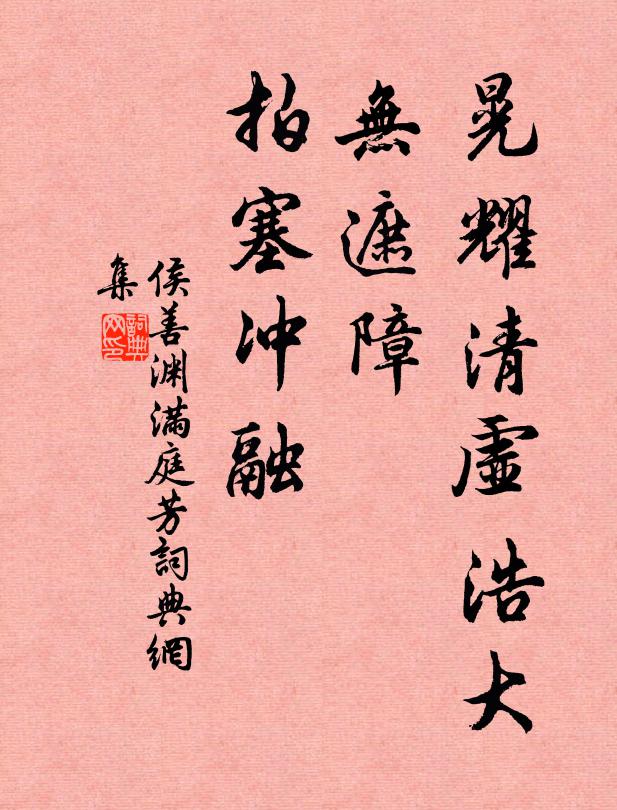 晃耀清虛浩大
無遮障
拍塞冲融
侯善渊滿庭芳詞典網
集
詞典
网印